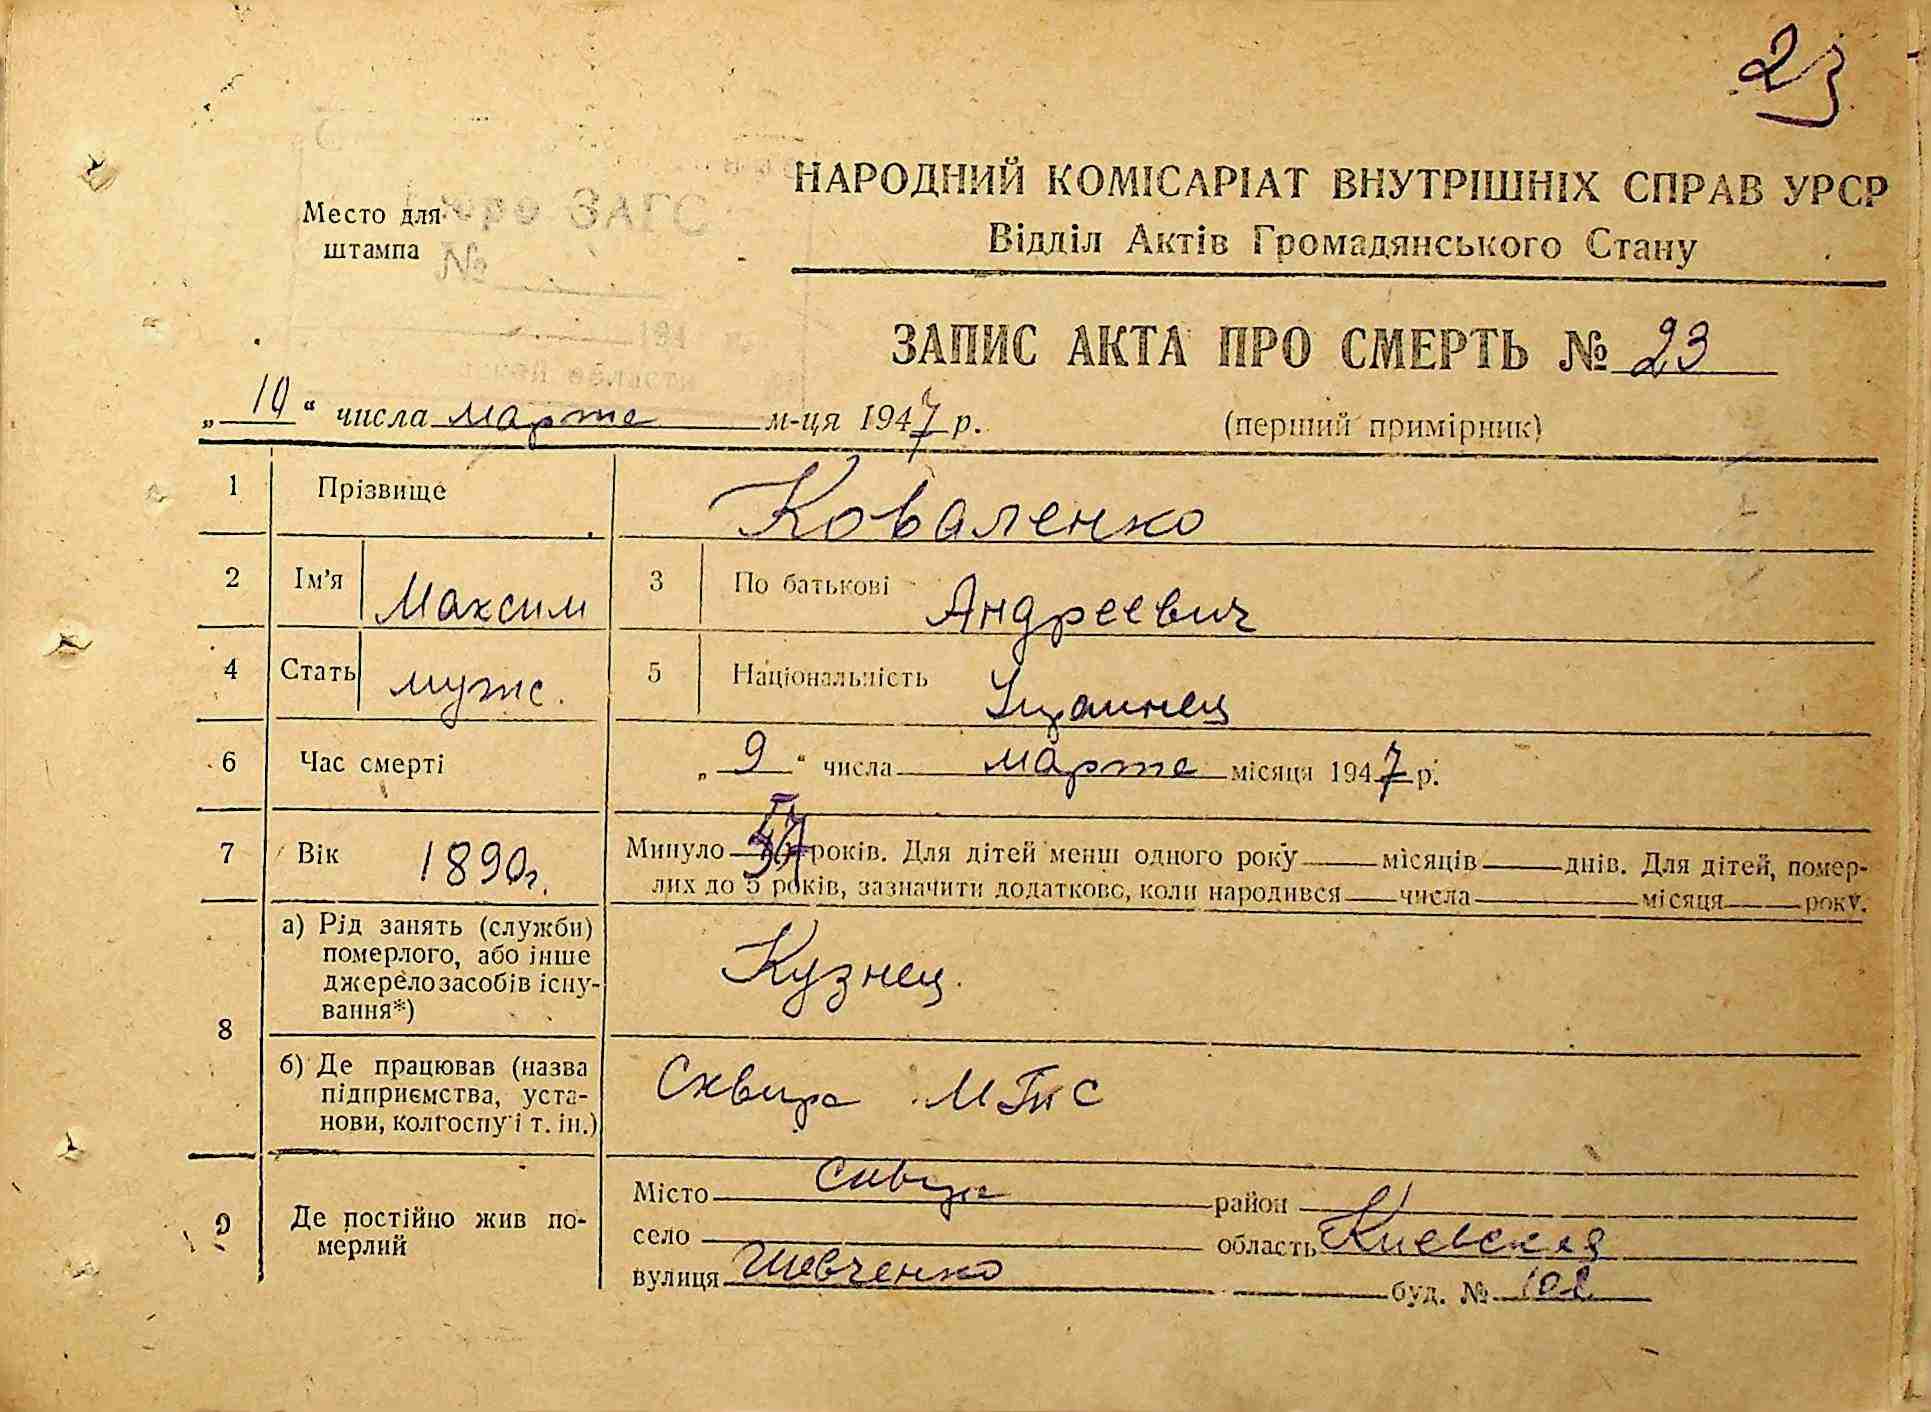 23
НАРОДНИЙ КОМІСАРІАТ ВНУТРІШНІХ СПРАВ УРСР
Відділ Актів Громадянського Стану
Место для штампа
Бюро ЗАГС
№
194
ЗАПИС АКТА ПРО СМЕРТЬ № 23
„10“ числа марта м-ця 1947 р. (перший примірник)
1 Прізвище Коваленко
2 Ім'я Максим 3 По батькові Андреевич
4 Стать муж. 5 Національність Украинец
6 Час смерті „9“ числа марта місяця 1947 р.
7 Вік 1890г. Минуло 57 років. Для дітей менш одного року місяців днів. Для дітей, помер-
лих до 5 років, зазначити додатково, коли народився числа місяця року.
8 а) Рід занять (служби)
померлого, або інше
джерело засобів існу-
вання*) Кузнец.
б) Де працював (назва
підприємства, уста-
нови, колгоспу і т. ін.) Сквира МТС
9 Де постійно жив по-
мерлий
Місто Сквира район
село область Киевская
вулиця Шевченко буд. № 102